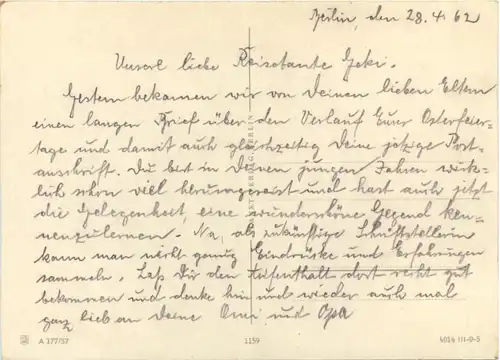 Berlin, den 28.4.62
Unsere liebe Reisetante Geki.
Gestern bekamen wir von Deinen lieben Eltern
einen langen Brief über den Verlauf Eurer Osterfeier-
tage und damit auch gleichzeitig Deine jetzige Post-
anschrift. Du bist in Deinen jungen Jahren wirk-
lich schon viel herumgereist und hast auch jetzt
die Gelegenheit, eine wunderschöne Gegend ken-
nenzulernen. Na, als zukünftige Schriftstellerin
kann man nicht genug Eindrücke und Erfahrungen
sammeln. Laß Dir den Aufenthalt dort recht gut
bekommen und denke hin und wieder auch mal
ganz lieb an Deine Omi und Opa
A 177/57
1159
4014 III-9-5